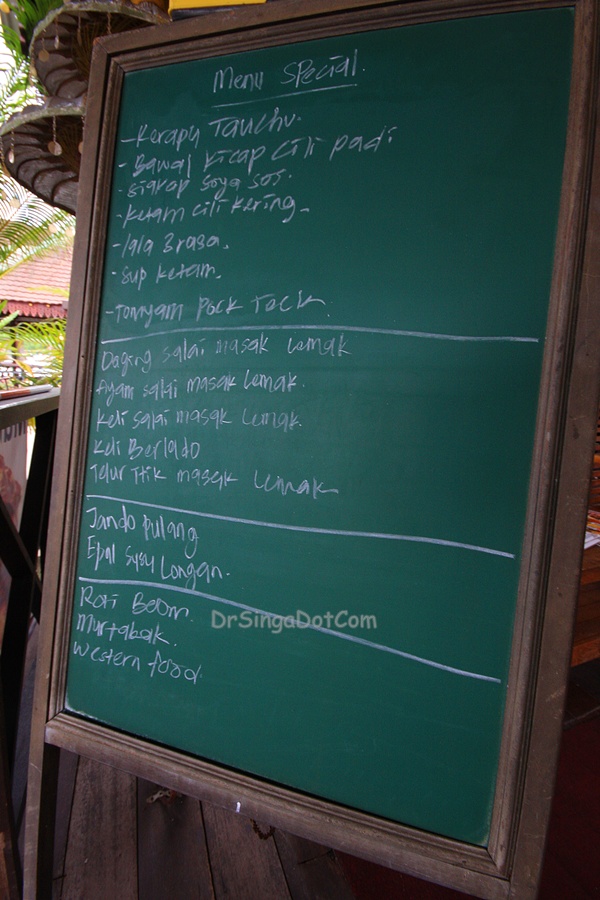 Menu Special.
- Kerapu Tauchu.
- Bawal kicap cili padi
- siakap soya sos.
- Ketam cili kering.
- lala Brasa.
- Sup ketam.
- Tomyam Pock Teck
Daging salai masak Lemak
Ayam salai masak Lemak.
keli salai masak Lemak.
keli Berlado
Telur Itik masak Lemak
Jando pulang
Epal susu Longan.
Roti Boom.
Murtabak.
Western food.
DrSingaDotCom